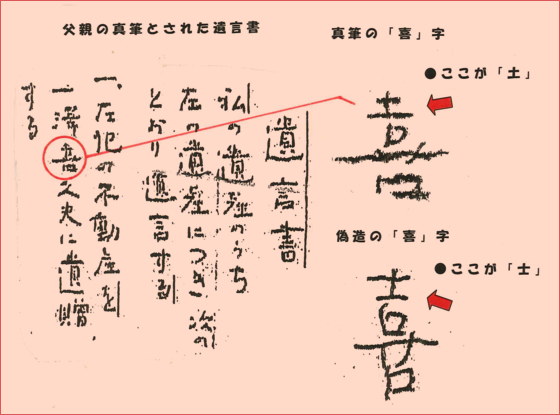 父親の真筆とされた遺言書
遺言書
私の遺産のうち
左の遺産につき次の
とおり遺言する
一、左記の不動産を
一澤喜久夫に遺贈
する
真筆の「喜」字
●ここが「土」
喜
偽造の「喜」字
●ここが「士」
喜